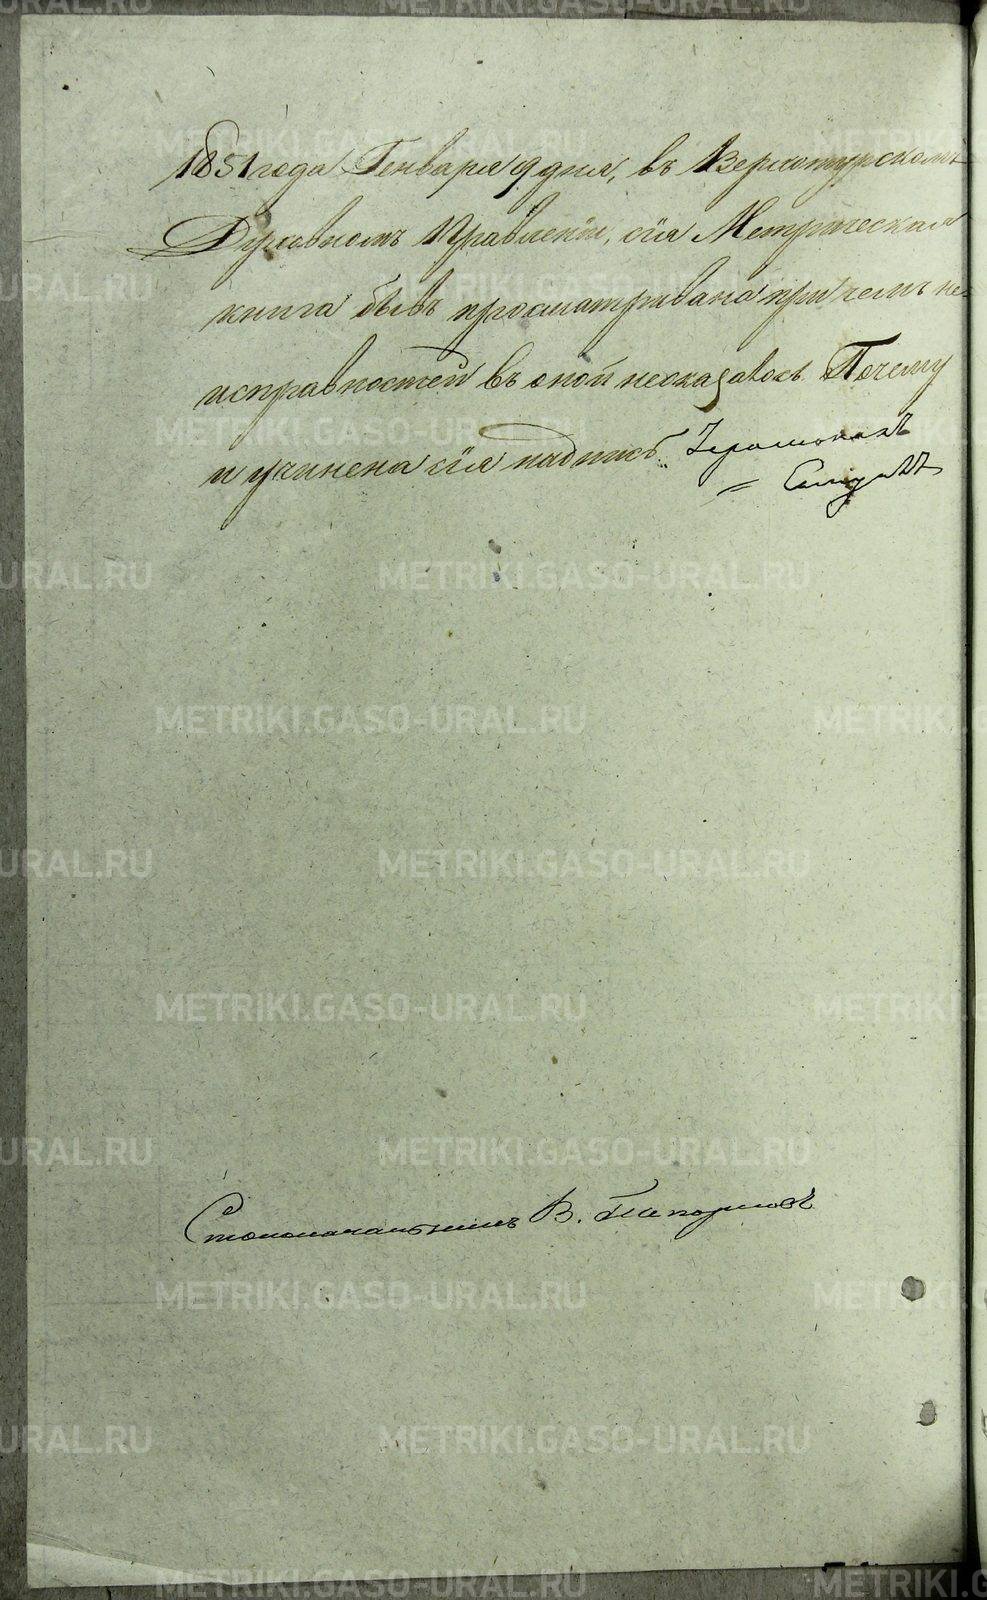 1851 года Генваря 9 дня, въ Верхотурскомъ
Духовномъ Правленіи, сія Метрическая
книга бывъ просматривана при чемъ не-
исправностей въ оной неоказалось. Почему
и учинена сія надпись. Іеромонахъ
Столоначальникъ В.
METRIKI.GASO-URAL.RU